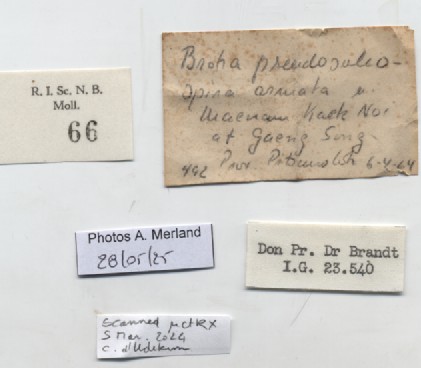 R. I. Sc. N. B.
Moll.
66
Brotia pseudosulco-
spira armata n.
Maenam Kaek Noi
at Gaeng Song
492 Prov. Pitsanulok 6-4-64
Photos A. Merland
28/05/25
Don Pr. Dr Brandt
I.G. 23.540
Scanned µctRX
5 Mar. 2024
C. d'Udekem